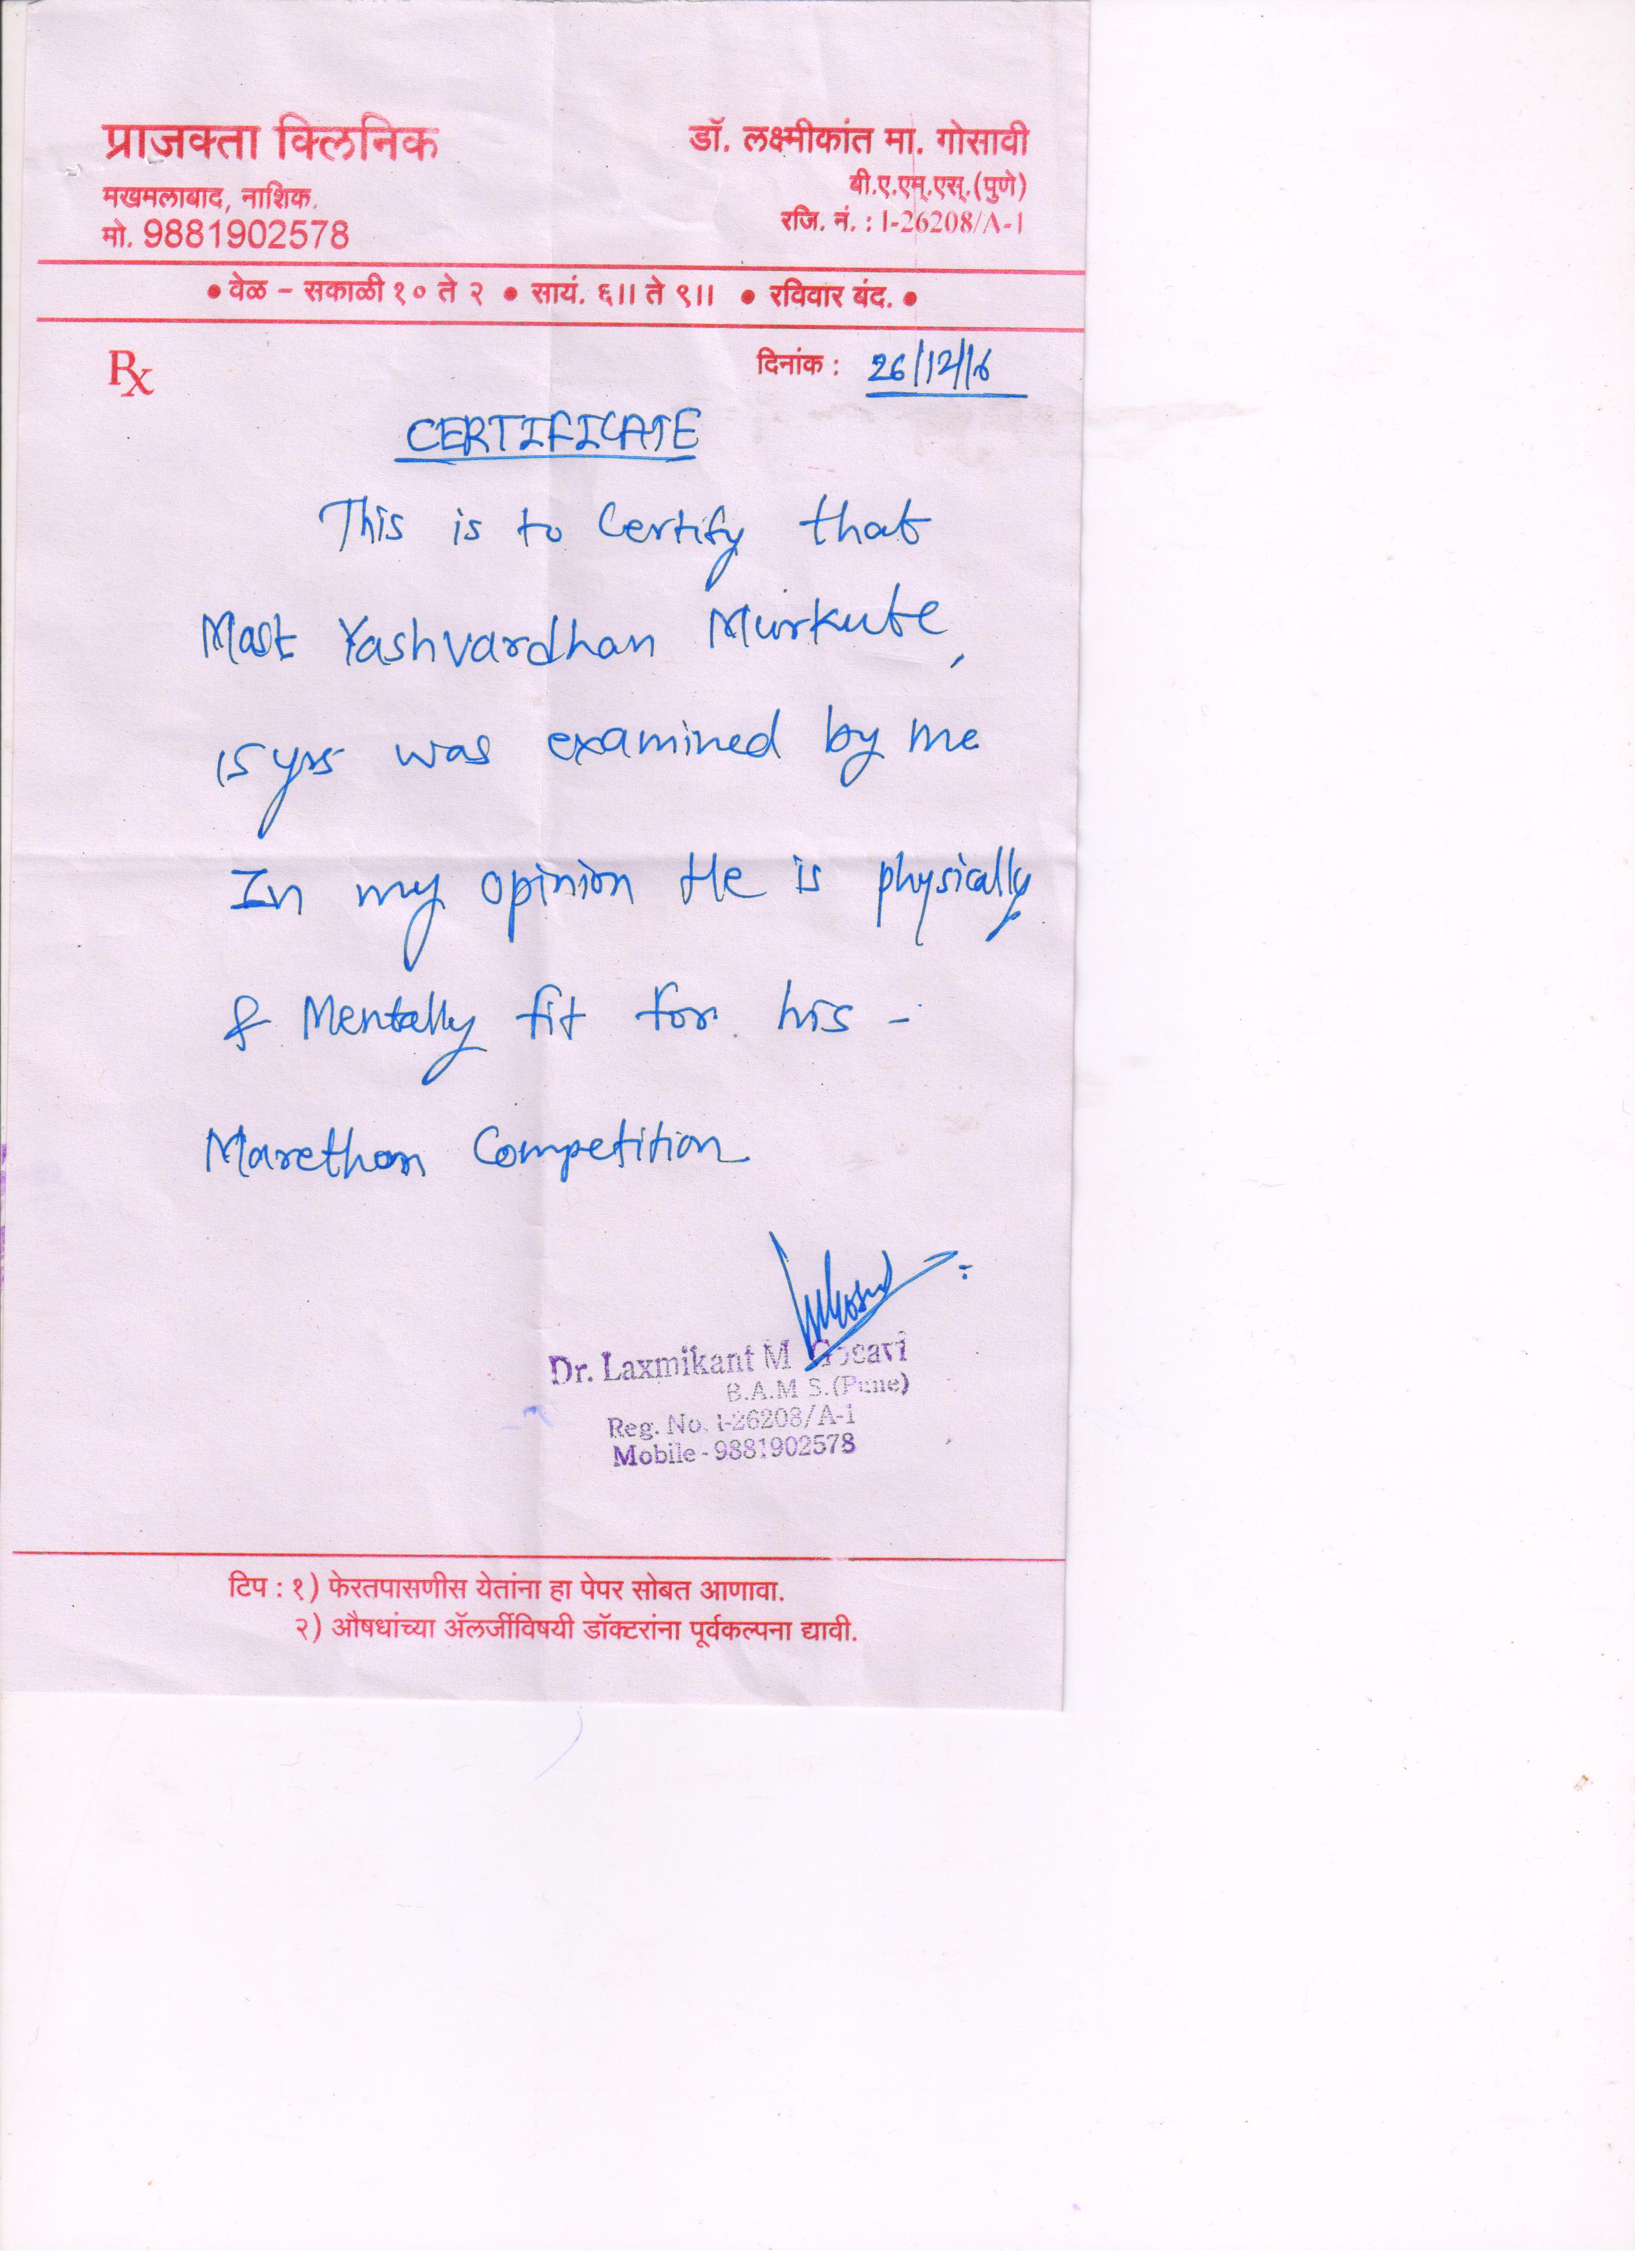 प्राजक्ता क्लिनिक
मखमलाबाद, नाशिक.
मो. 9881902578
डॉ. लक्ष्मीकांत मा. गोसावी
बी.ए.एम्.एस्.(पुणे)
रजि. नं. : I-26208/A-1
• वेळ – सकाळी १० ते २ • सायं. ६।। ते ९।। • रविवार बंद. •
Rx
दिनांक : 26/12/16
CERTIFICATE
This is to Certify that
Mast Yashvardhan Murkute,
15 yrs was examined by me
In my opinion He is physically
& Mentally fit for his -
Marethon Competition
Dr. Laxmikant M Gosavi
B.A.M S.(Pune)
Reg. No. I-26208/A-1
Mobile - 9881902578
टिप : १) फेरतपासणीस येतांना हा पेपर सोबत आणावा.
२) औषधांच्या ॲलर्जीविषयी डॉक्टरांना पूर्वकल्पना द्यावी.